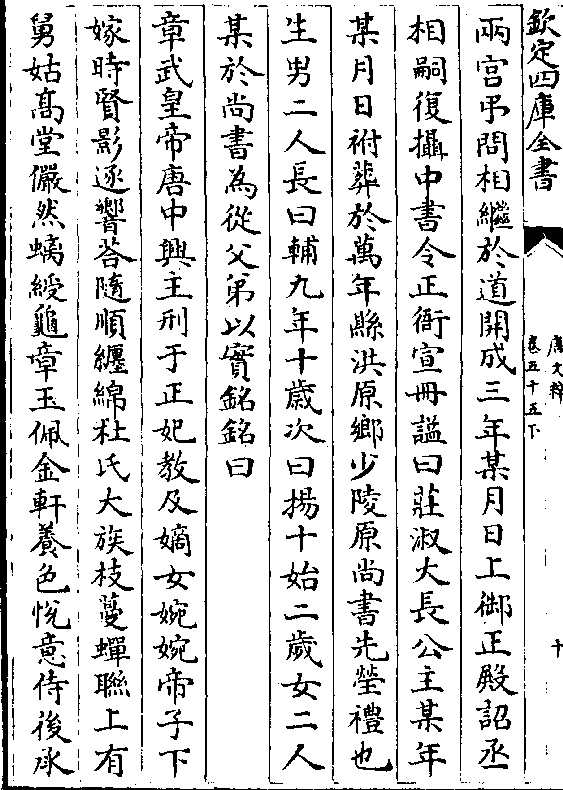 欽定四庫全書
唐文粹
卷五十五下
十
兩宫弔問相繼於道開成三年某月日上御正殿詔丞
相嗣復攝中書令正衙宣冊諡曰莊淑大長公主某年
某月日祔葬於萬年縣洪原鄉少陵原尚書先塋禮也
生男二人長曰輔九年十歲次曰揚十始二歲女二人
某於尚書為從父弟以實銘銘曰
章武皇帝唐中興主刑于正妃教及嫡女婉婉帝子下
嫁時賢影逐響荅隨順纏綿杜氏大族枝蔓蟬聯上有
舅姑髙堂儼然螭綬龜章玉佩金軒養色悅意侍後承